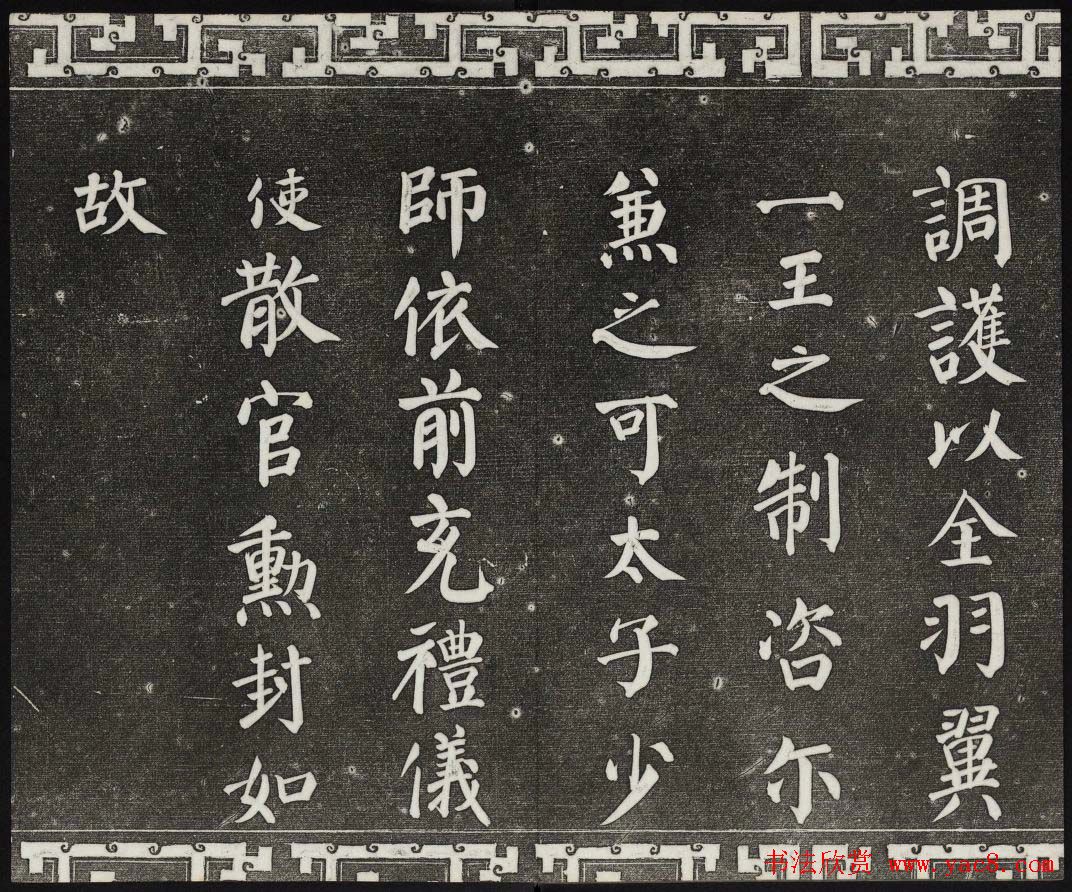 調護以全羽翼
一王之制咨尓
兼之可太子少
師依前充禮儀
使散官勳封如
故
书法欣赏 www.yac8.com